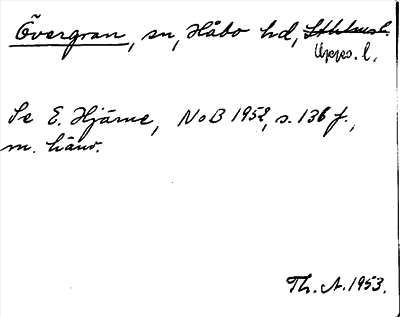 Övergran, sn, Håbo hd, Sthlms l.
Upps. l.
Se E. Hjärne, NoB 1952, s. 136 f.,
m. hänv.
Th. A. 1953.